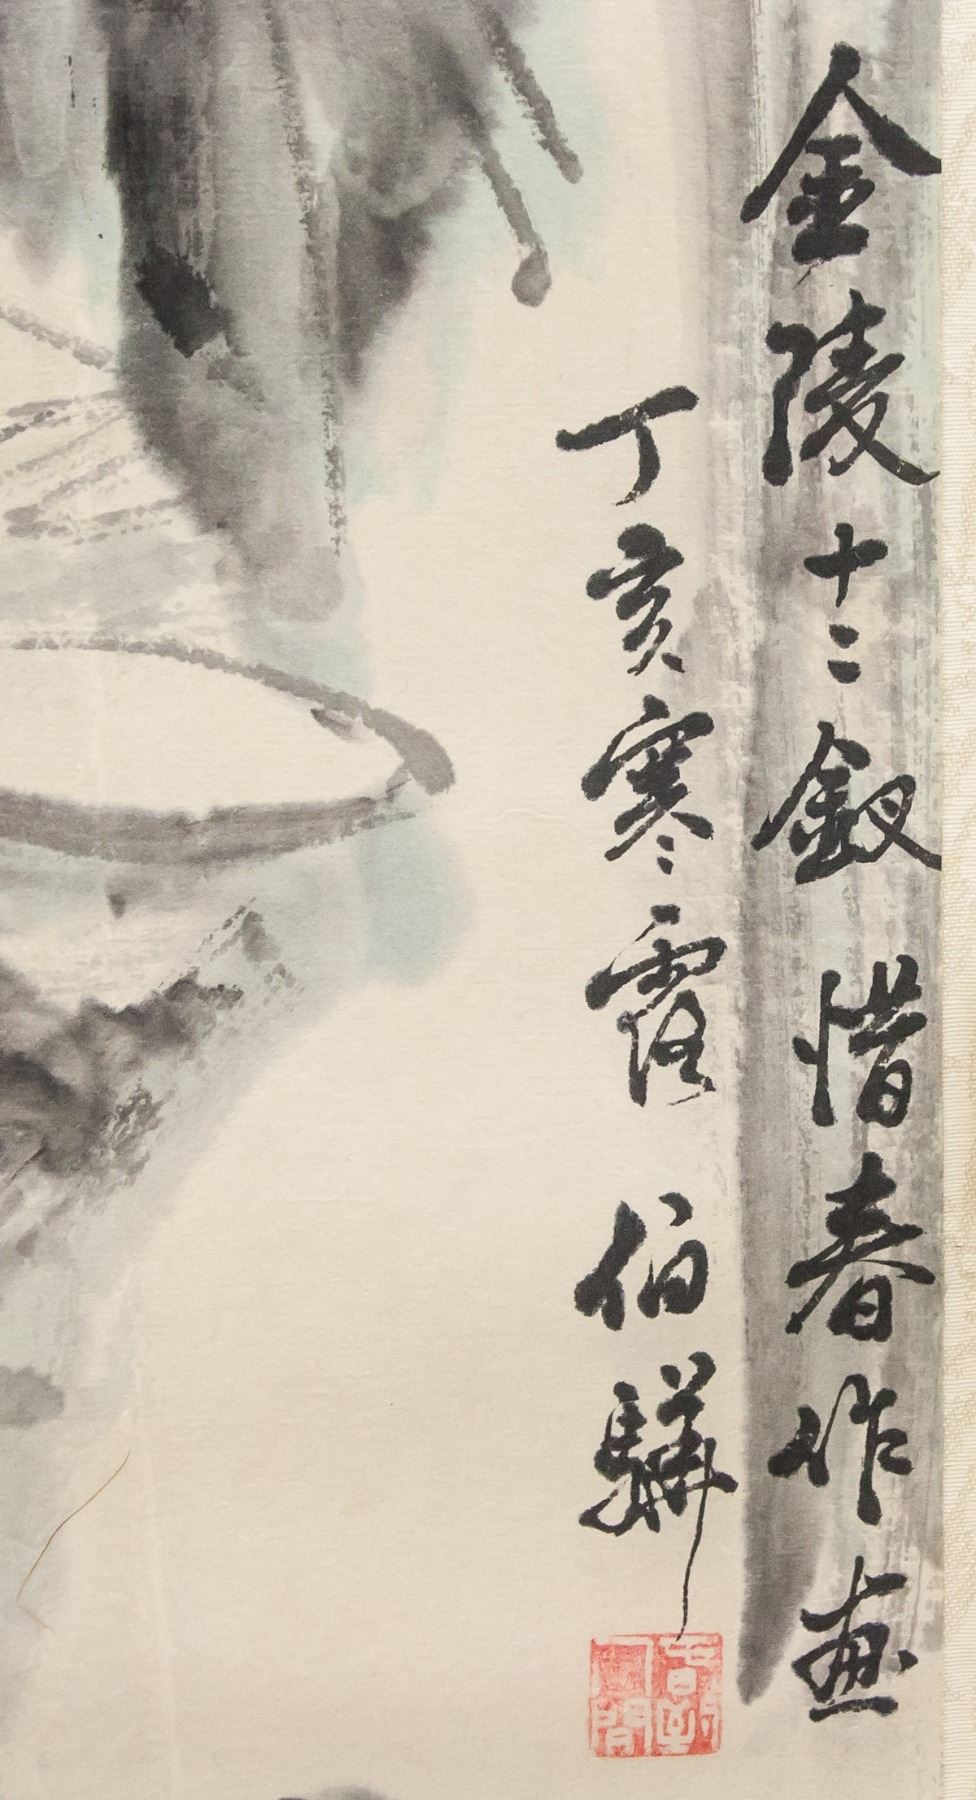 金陵十二釵 惜春作画
丁亥寒露 伯驊